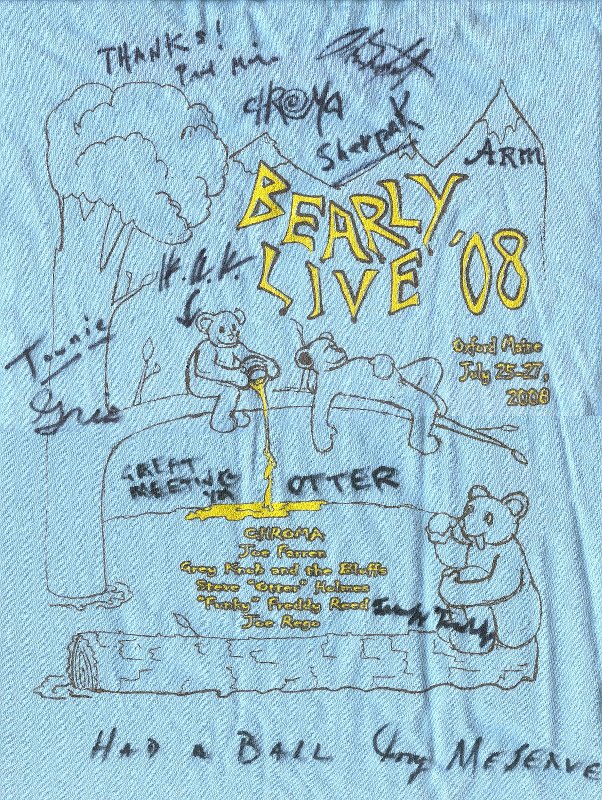 THANKS!
CHROMA
Sherpak
ARM
BEARLY
LIVE '08
H.A.K.
Oxford Maine
July 25-27,
2008
Townie
GREAT
MEETING
YA
OTTER
CHROMA
Joe Farren
Grey Knob and the Bluffs
Steve "Otter" Holmes
"Funky" Freddy Reed
Joe Rego
HAD A BALL MESERVE